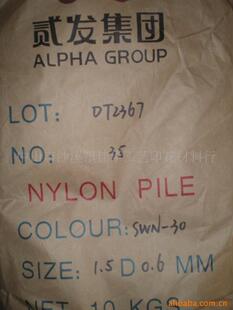 贰发集团
ALPHA GROUP
LOT: DT2367
NO: 35
NYLON PILE
COLOUR: SWN-30
SIZE: 1.5 D 0.6 MM
NET 10 KGS
alibaba.com.cn